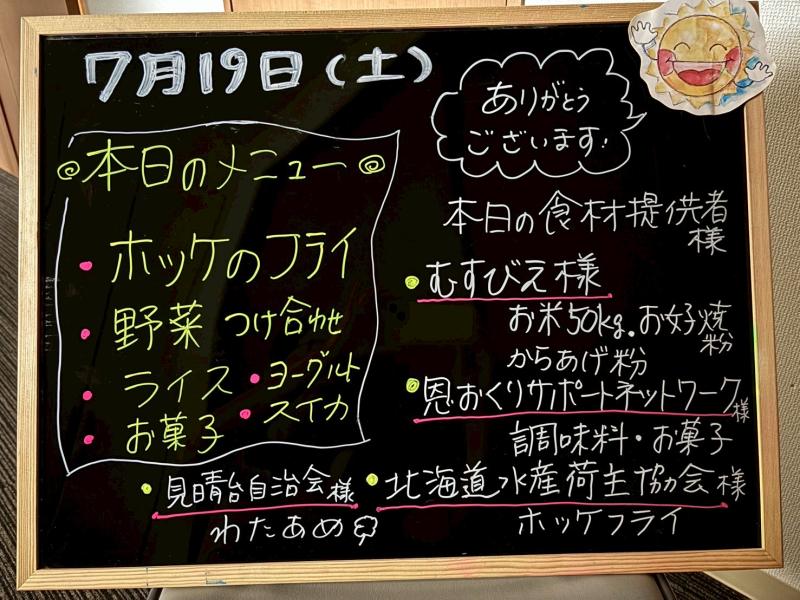 7月19日(土)
ありがとう
ございます!
本日のメニュー
ホッケのフライ
野菜 つけ合わせ
ライス・ヨーグルト
お菓子・スイカ
本日の食材提供者
様
むすびえ様
お米50kg.お好焼
粉
からあげ粉
恩おくりサポートネットワーク様
調味料・お菓子
見晴台自治会様
わたあめ
北海道水産荷主協会様
ホッケフライ